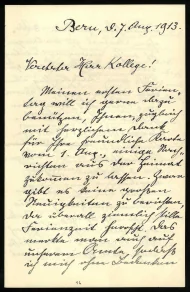 Bern, d. 7. Aug. 1913.
Verehrter Herr Kollege!
Meinen ersten Ferien-
tag will ich gerne dazu
benützen, Ihnen, zugleich
mit herzlichem Dank
für Ihre freundliche Karte
vom 1. Aug., einige Nach-
richten aus der Heimat
zukommen zu lassen. Zwar
gibt es keine großen
Neuigkeiten zu berichten,
da überall ziemlich stille
Ferienzeit herrscht. Das
merkte man auch auf
unserem Amte, sodaß
ich mich ohne Bedenken